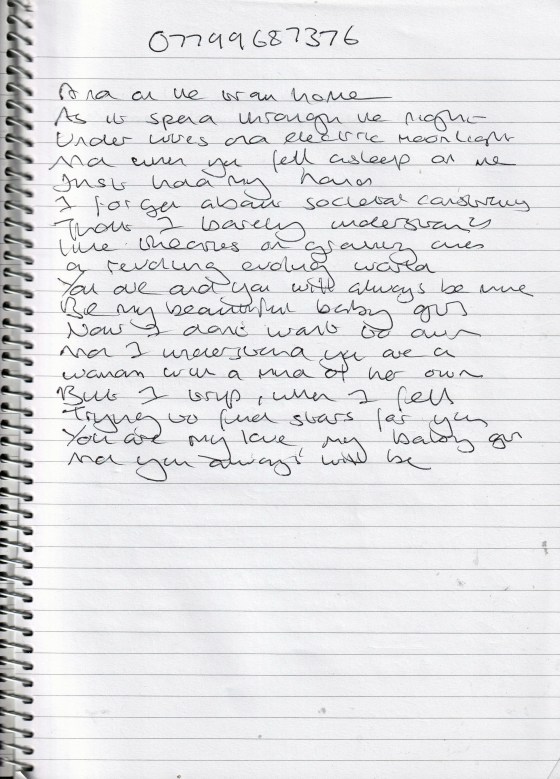 07799687376
And on the train home
As it sped through the night
Under wires and electric moonlight
And when you fell asleep on me
Just hold my hand
I forget about societal constraints
That I barely understand
like theories on gravity and
a revolving evolving world
You are and you will always be mine
Be my beautiful baby girl
Now I don't want to own
And I understand you are a
woman with a mind of her own
But I trip, when I fell
Trying to find stars for you
You are my love my baby girl
And you always will be